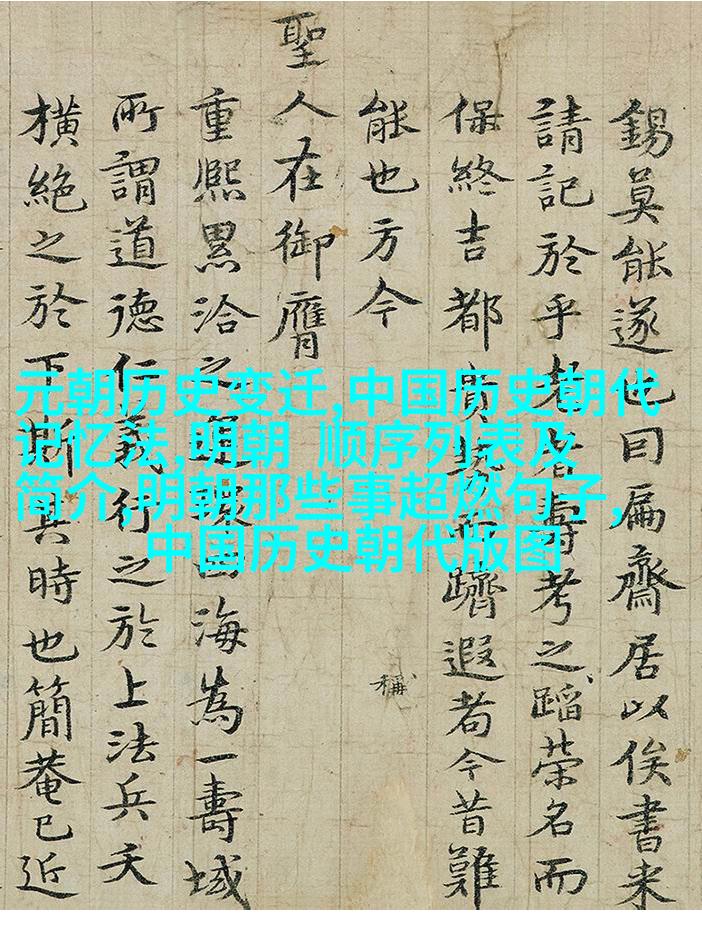 錫莫能遂也曰扁齋居以俟書来
請記於乎老者壽考之蹈榮名而
保終吉都貴而躋遐耇今昔難
能也方今
稱
聖人在御膺
重熙累洽之運海為一壽域
所謂道德仁義行之於上法兵夭
橫絕之於下斯其時也簡菴已近
元朝历史变迁,中国历史朝代
记忆法,明朝 顺序列表及
简介,明朝那些事超燃句子,
中国历史朝代版图